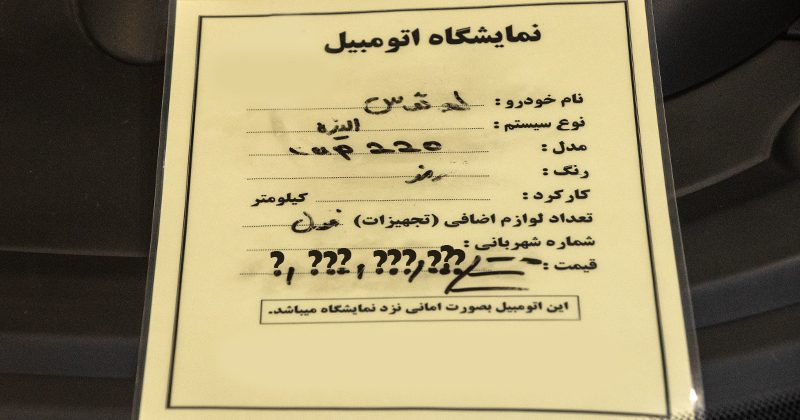 نمایشگاه اتومبیل
نام خودرو : لوتوس
نوع سیستم : الیزه
مدل : cup 220
رنگ :
کارکرد : کیلومتر
تعداد لوازم اضافی (تجهیزات)
شماره شهربانی :
قیمت : ???,???,???,?
این اتومبیل بصورت امانی نزد نمایشگاه میباشد.